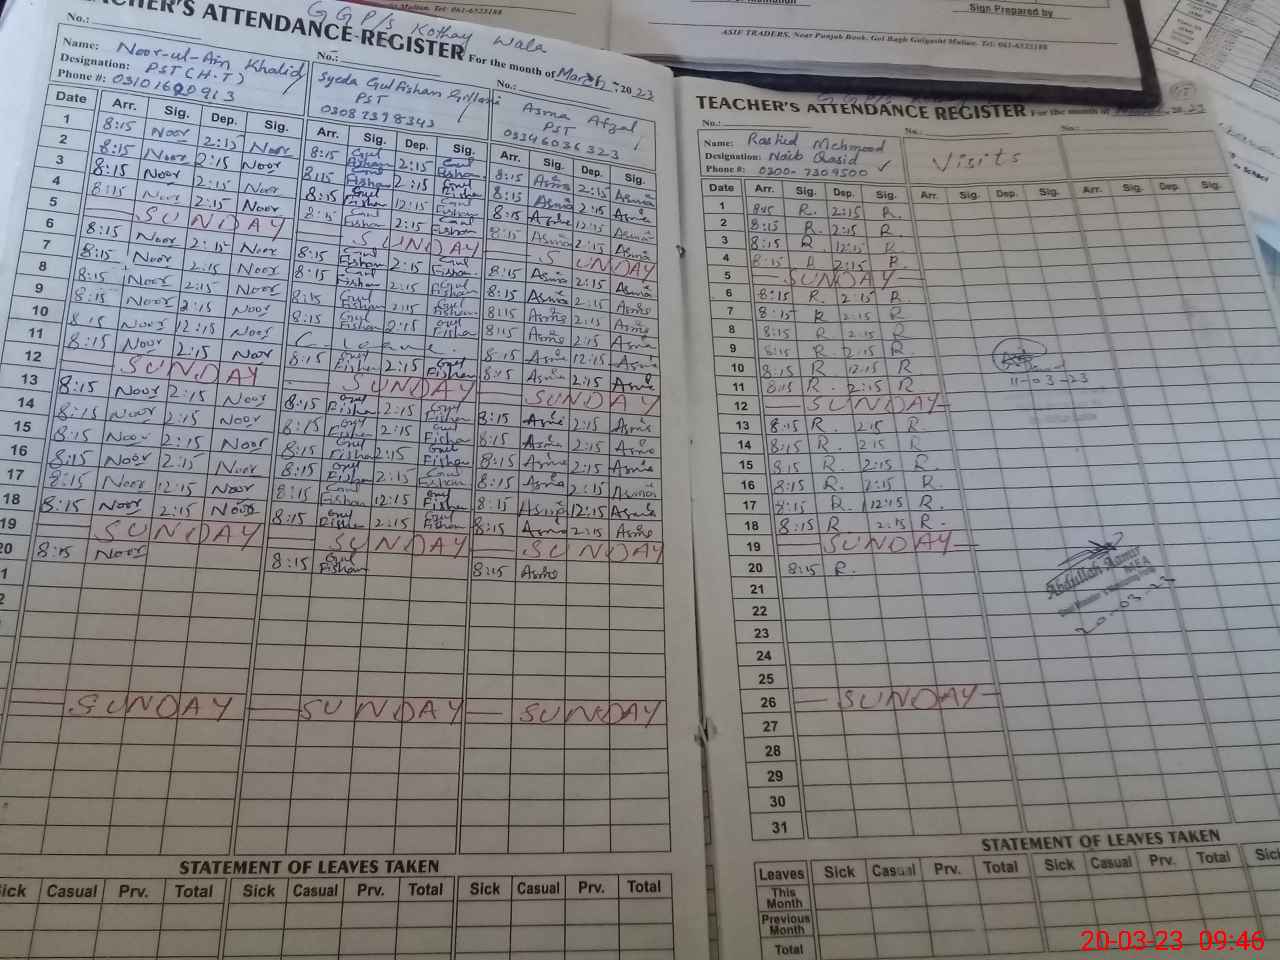 Multan. Tel: 061-6523188
Sign Prepared by
ASIF TRADERS, Near Punjab Book, Gol Bagh Gulgasht Multan. Tel: 061-6523188
GGP/s Kothay Wala
TEACHER'S ATTENDANCE REGISTER For the month of March, 2023
No.: No.: No.:
Name: Noor-ul-Ain Khalid Syeda Gulfishan Gillani Asma Afzal
Designation: PST (H.T) PST PST
Phone #: 03101620913 03087398343 03346036323
Date Arr. Sig. Dep. Sig. Arr. Sig. Dep. Sig. Arr. Sig. Dep. Sig.
1 8:15 Noor 2:15 Noor 8:15 Gul Fishan 2:15 Gul Fishan 8:15 Asma 2:15 Asma
2 8:15 Noor 2:15 Noor 8:15 Gul Fishan 2:15 Gul Fishan 8:15 Asma 2:15 Asma
3 8:15 Noor 2:15 Noor 8:15 Gul Fishan 12:15 Gul Fishan 8:15 Asma 12:15 Asma
4 8:15 Noor 2:15 Noor 8:15 Gul Fishan 2:15 Gul Fishan 8:15 Asma 2:15 Asma
5 SUNDAY SUNDAY SUNDAY
6 8:15 Noor 2:15 Noor 8:15 Gul Fishan 2:15 Gul Fishan 8:15 Asma 2:15 Asma
7 8:15 Noor 2:15 Noor 8:15 Gul Fishan 2:15 Gul Fishan 8:15 Asma 2:15 Asma
8 8:15 Noor 2:15 Noor 8:15 Gul Fishan 2:15 Gul Fishan 8:15 Asma 2:15 Asma
9 8:15 Noor 2:15 Noor 8:15 Gul Fishan 2:15 Gul Fishan 8:15 Asma 2:15 Asma
10 8:15 Noor 12:15 Noor C. Leave. 8:15 Asma 12:15 Asma
11 8:15 Noor 2:15 Noor 8:15 Gul Fishan 2:15 Gul Fishan 8:15 Asma 2:15 Asma
12 SUNDAY SUNDAY SUNDAY
13 8:15 Noor 2:15 Noor 8:15 Gul Fishan 2:15 Gul Fishan 8:15 Asma 2:15 Asma
14 8:15 Noor 2:15 Noor 8:15 Gul Fishan 2:15 Gul Fishan 8:15 Asma 2:15 Asma
15 8:15 Noor 2:15 Noor 8:15 Gul Fishan 2:15 Gul Fishan 8:15 Asma 2:15 Asma
16 8:15 Noor 2:15 Noor 8:15 Gul Fishan 2:15 Gul Fishan 8:15 Asma 2:15 Asma
17 8:15 Noor 12:15 Noor 8:15 Gul Fishan 12:15 Gul Fishan 8:15 Asma 12:15 Asma
18 8:15 Noor 2:15 Noor 8:15 Gul Fishan 2:15 Gul Fishan 8:15 Asma 2:15 Asma
19 SUNDAY SUNDAY SUNDAY
20 8:15 Noor 8:15 Gul Fishan 8:15 Asma
SUNDAY SUNDAY SUNDAY
STATEMENT OF LEAVES TAKEN
Sick Casual Prv. Total Sick Casual Prv. Total Sick Casual Prv. Total
TEACHER'S ATTENDANCE REGISTER For the month of 2023
No.: No.: No.:
Name: Rashid Mehmood
Designation: Naib Qasid Visits
Phone #: 0300-7309500
Date Arr. Sig. Dep. Sig. Arr. Sig. Dep. Sig. Arr. Sig. Dep. Sig.
1 8:15 R. 2:15 R.
2 8:15 R. 2:15 R.
3 8:15 R 12:15 R
4 8:15 R 2:15 R.
5 SUNDAY
6 8:15 R. 2:15 R.
7 8:15 R 2:15 R
8 8:15 R 2:15 R
9 8:15 R 2:15 R.
10 8:15 R 12:15 R
11 8:15 R. 2:15 R.
11-03-23
12 SUNDAY
13 8:15 R. 2:15 R.
14 8:15 R. 2:15 R.
15 8:15 R. 2:15 R.
16 8:15 R. 2:15 R.
17 8:15 R. 12:15 R.
18 8:15 R 2:15 R.
19 SUNDAY
20 8:15 R.
21
Abdullah Aamir
MEA
20-03-23
22
23
24
25
26 SUNDAY
27
28
29
30
31
STATEMENT OF LEAVES TAKEN
Leaves Sick Casual Prv. Total Sick Casual Prv. Total Sick
This Month
Previous Month
Total
20-03-23 09:46